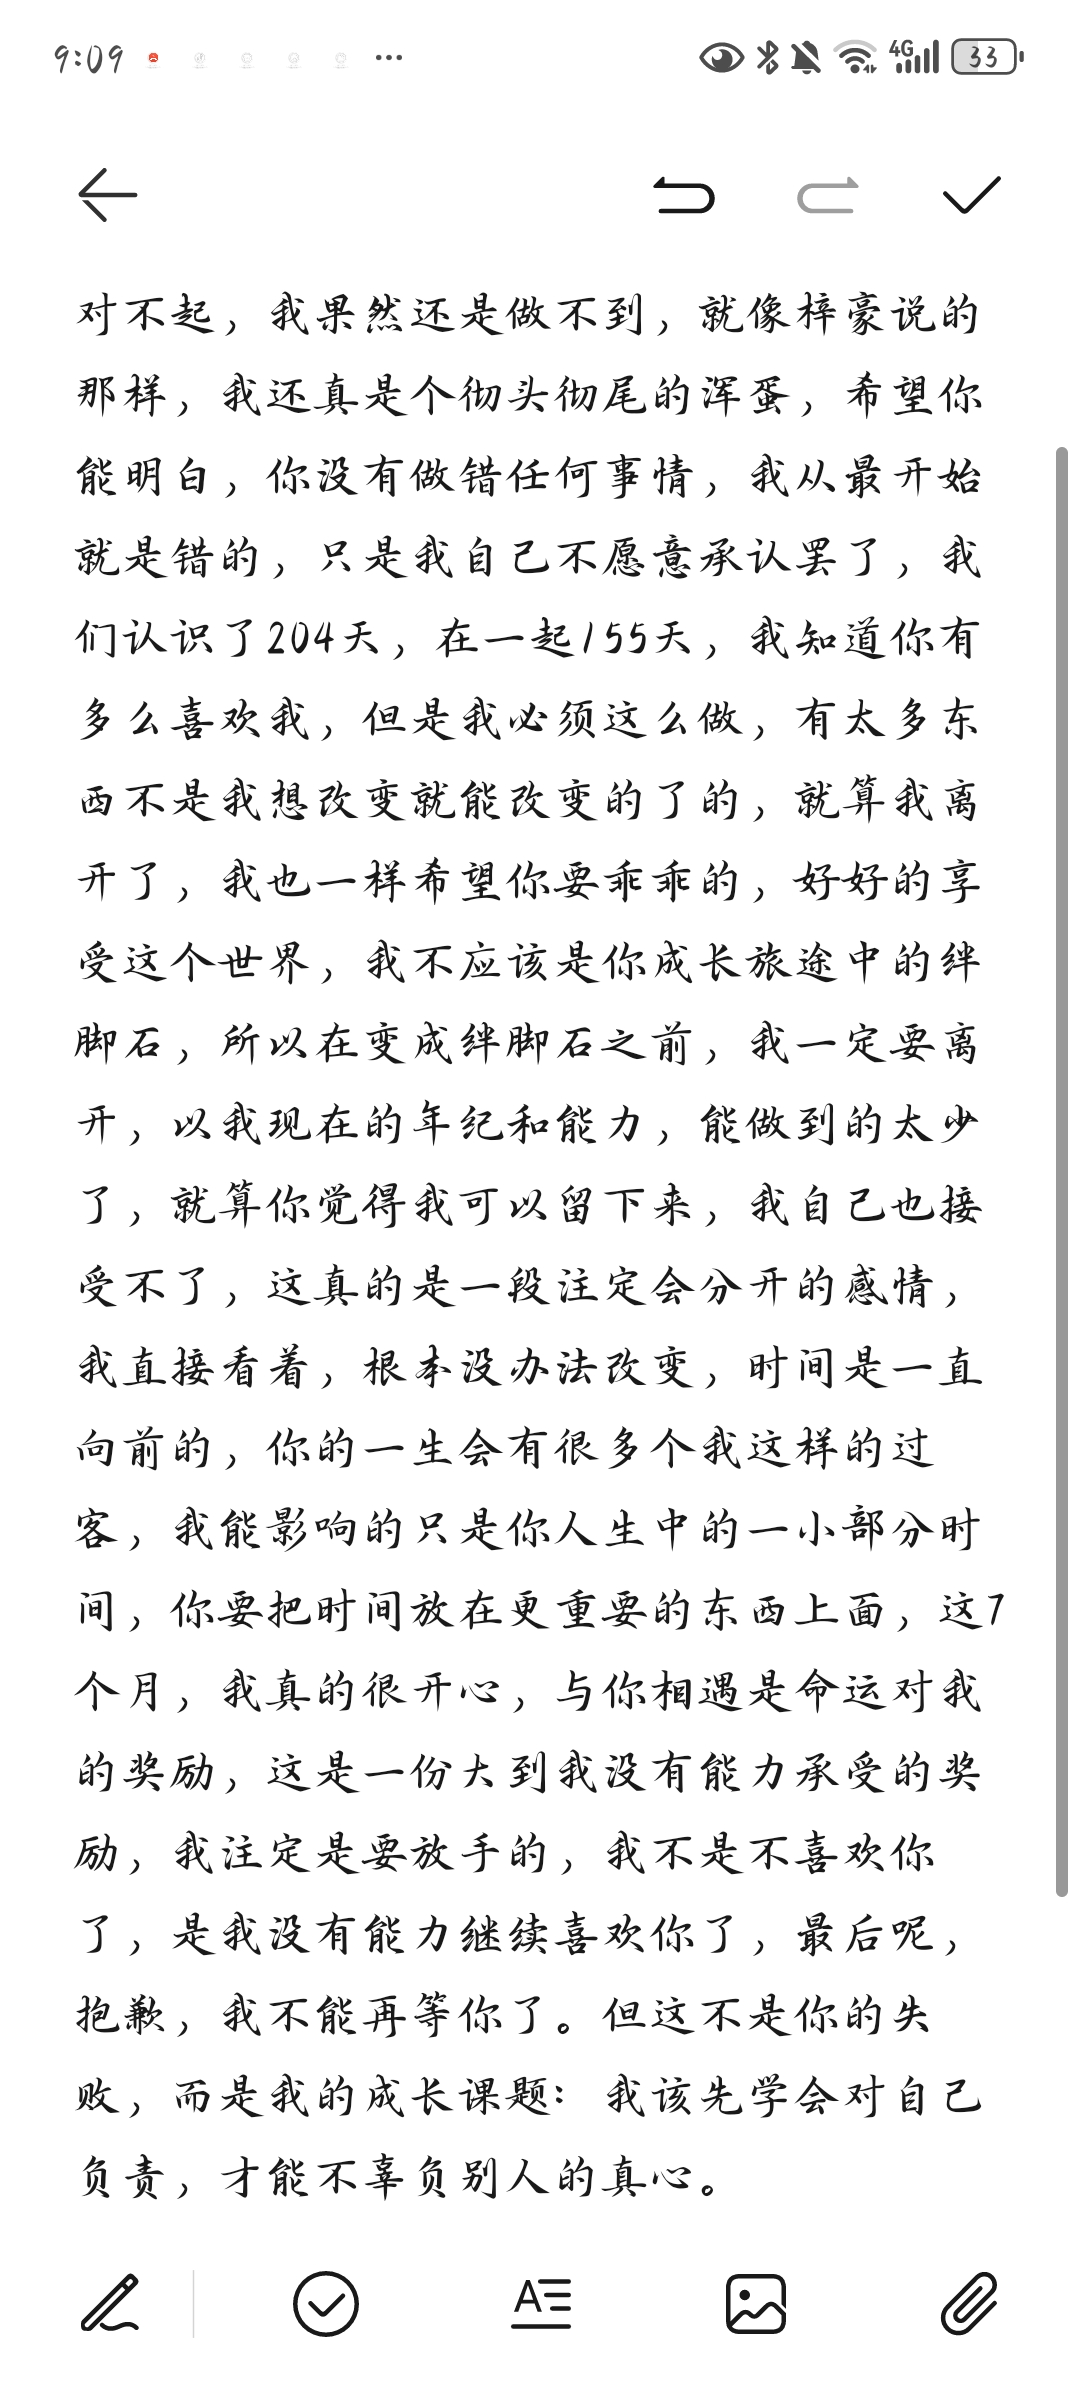 9:09
4G
33
对不起，我果然还是做不到，就像梓豪说的
那样，我还真是个彻头彻尾的浑蛋，希望你
能明白，你没有做错任何事情，我从最开始
就是错的，只是我自己不愿意承认罢了，我
们认识了204天，在一起155天，我知道你有
多么喜欢我，但是我必须这么做，有太多东
西不是我想改变就能改变的了的，就算我离
开了，我也一样希望你要乖乖的，好好的享
受这个世界，我不应该是你成长旅途中的绊
脚石，所以在变成绊脚石之前，我一定要离
开，以我现在的年纪和能力，能做到的太少
了，就算你觉得我可以留下来，我自己也接
受不了，这真的是一段注定会分开的感情，
我直接看着，根本没办法改变，时间是一直
向前的，你的一生会有很多个我这样的过
客，我能影响的只是你人生中的一小部分时
间，你要把时间放在更重要的东西上面，这7
个月，我真的很开心，与你相遇是命运对我
的奖励，这是一份大到我没有能力承受的奖
励，我注定是要放手的，我不是不喜欢你
了，是我没有能力继续喜欢你了，最后呢，
抱歉，我不能再等你了。但这不是你的失
败，而是我的成长课题：我该先学会对自己
负责，才能不辜负别人的真心。